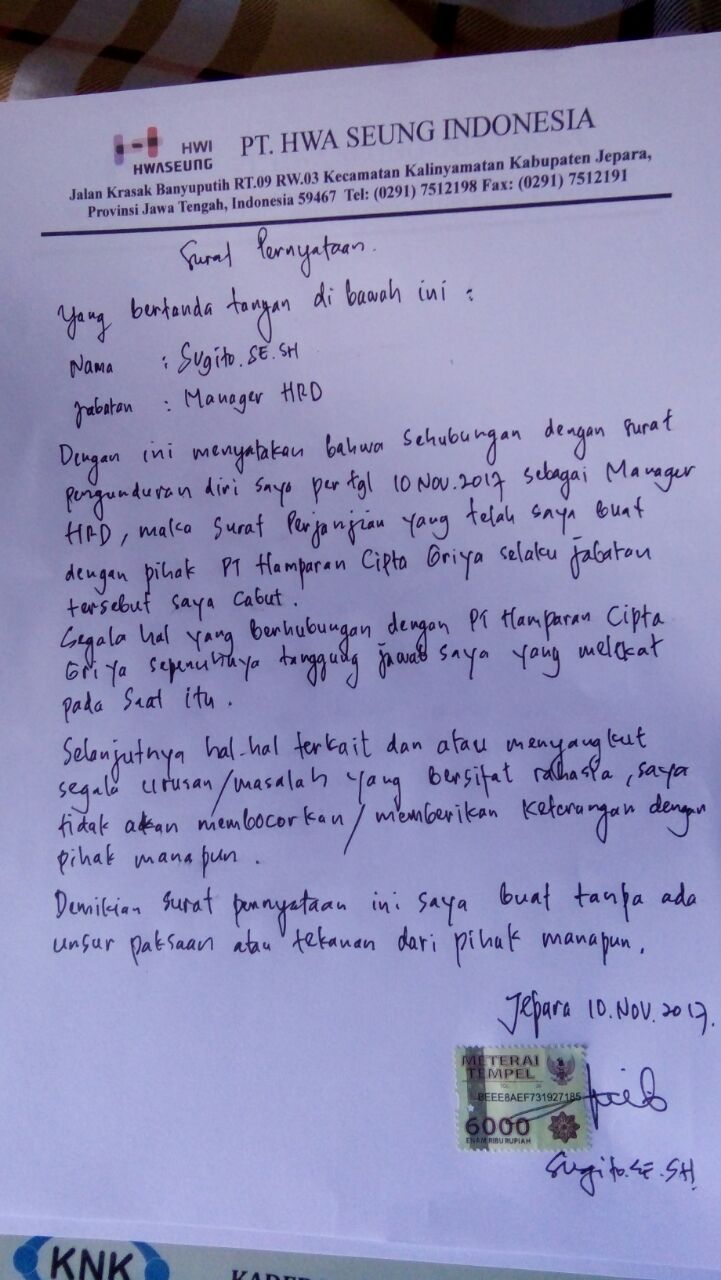 HWI
HWASEUNG
PT. HWA SEUNG INDONESIA
Jalan Krasak Banyuputih RT.09 RW.03 Kecamatan Kalinyamatan Kabupaten Jepara,
Provinsi Jawa Tengah, Indonesia 59467 Tel: (0291) 7512198 Fax: (0291) 7512191
Surat Pernyataan.
Yang bertanda tangan di bawah ini :
Nama : Sugito.SE.SH
Jabatan : Manager HRD
Dengan ini menyatakan bahwa sehubungan dengan surat
pengunduran diri saya per tgl 10 Nov.2017 sebagai Manager
HRD, maka surat perjanjian yang telah saya buat
dengan pihak PT Hamparan Cipta Griya selaku jabatan
tersebut saya cabut.
Segala hal yang berhubungan dengan PT Hamparan Cipta
Griya sepenuhnya tanggung jawab saya yang melekat
pada saat itu.
Selanjutnya hal-hal terkait dan atau menyangkut
segala urusan/masalah yang bersifat rahasia, saya
tidak akan membocorkan/memberikan keterangan dengan
pihak manapun.
Demikian surat pernyataan ini saya buat tanpa ada
unsur paksaan atau tekanan dari pihak manapun.
Jepara 10.Nov.2017.
METERAI
TEMPEL
BEEE8AEF731927185
6000
ENAM RIBU RUPIAH
Sugito.SE.SH
KNK